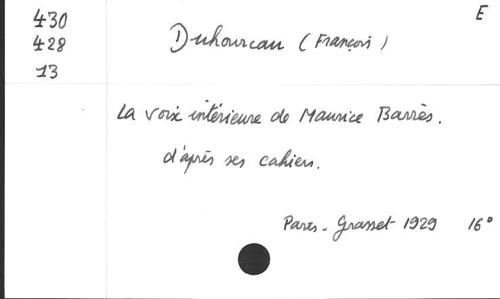 E
430
428
13
Duhourcau (François)
La voix intérieure de Maurice Barrès.
d'après ses cahiers.
Paris - Grasset 1929 16°